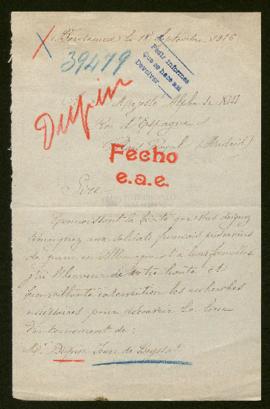 le 18 Septembre 1916
39479
Pedir informes
Que se hace así
Devolver
Dupin
A Sa Majesté Alphonse XIII
Roi d'Espagne
Palais Royal (Madrid)
Fecho
e.a.e.
Sire
Connaissant la bonté que vous daignez
témoigner aux soldats français prisonniers
de guerre en Allemagne et à leurs familles
j'ai l'honneur de votre haute et
bienveillante intervention les recherches
nécessaires pour découvrir le lieu
d'internement de:
Mr Dupin Jean de